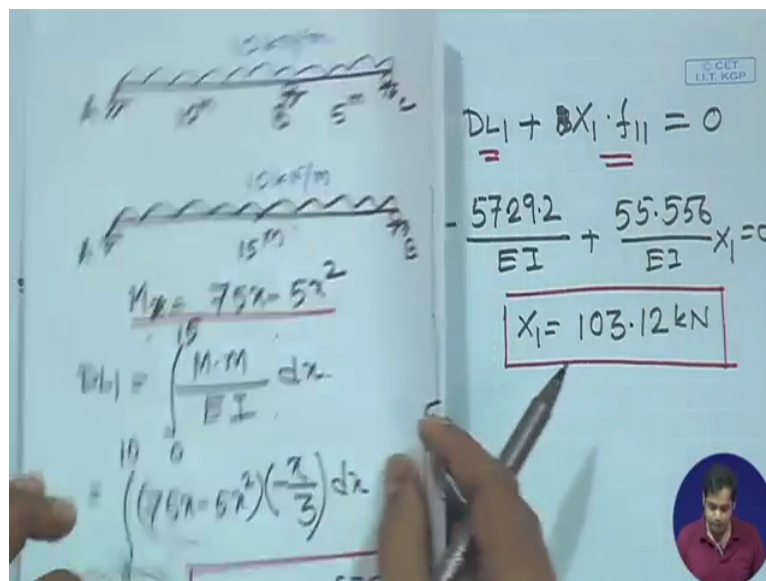 10 kN/m
A
10m
B
5m
10 kN/m
A
15m
Mx = 75x - 5x²
15
DL1 = ∫ M·m / EI dx
0
10
= ∫ (75x - 5x²)(-x/3) dx
© CET
I.I.T. KGP
DL1 + X1·f11 = 0
- 5729.2 / EI + 55.556 / EI X1 = 0
X1 = 103.12 kN